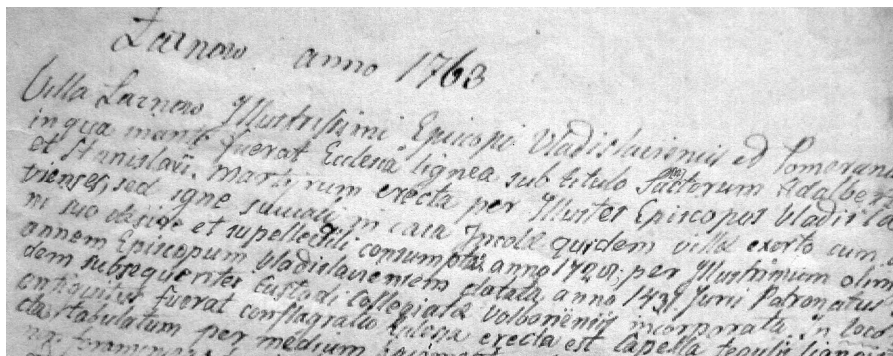 Żarnow anno 1763
Villa Żarnow Illustrissimi Episcopi Vladislaviensis et Pomerana
in qua fuerat Ecclesia lignea sub titulo Sanctorum Adalber
et Stanislavi martyrum erecta per Illustres Episcopos Vladisla
vienses, sed igne in casa quidem villæ exorto cum
ni suo et supellectili consumpta anno 1720; per Illustrimum olim
annem Episcopum Vladislaviensem dotata, anno 1431 Juri Patronatus
dem subsequenter Custodi Collegiatæ Volboriensis incorporata. In loco
antiquitus fuerat conflagratio erecta est Capella
cta tabulatum per medium